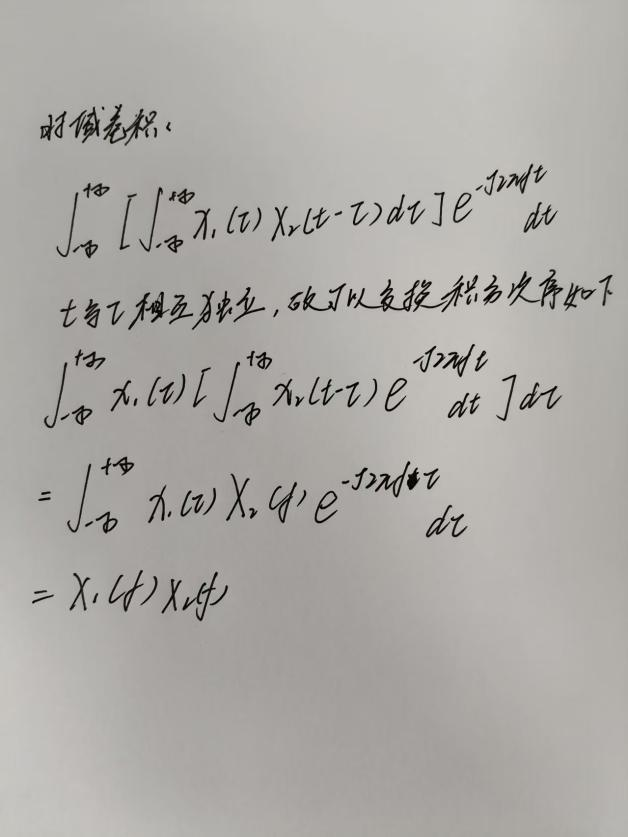 时域卷积:
∫_{-∞}^{+∞} [∫_{-∞}^{+∞} x₁(τ) x₂(t-τ) dτ] e^{-j2πft} dt
t与τ相互独立,故可以交换积分次序如下
∫_{-∞}^{+∞} x₁(τ) [∫_{-∞}^{+∞} x₂(t-τ) e^{-j2πft} dt] dτ
= ∫_{-∞}^{+∞} x₁(τ) X₂(f) e^{-j2πfτ} dτ
= X₁(f) X₂(f)